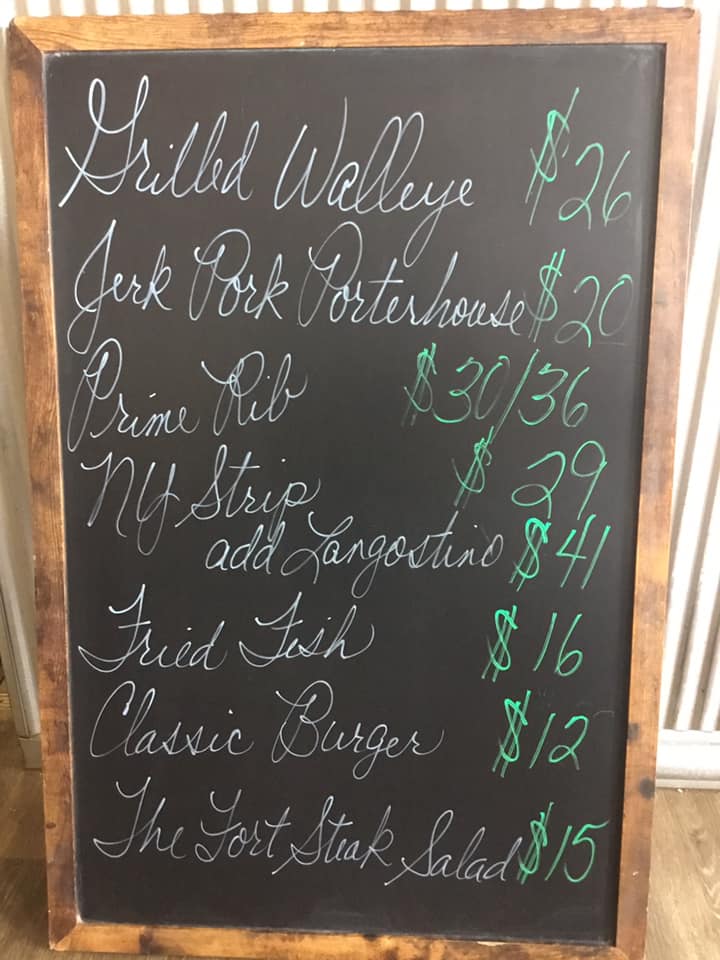 Grilled Walleye $26
Jerk Pork Porterhouse $20
Prime Rib $30/36
NY Strip $29
add Langostino $41
Fried Fish $16
Classic Burger $12
The Fort Steak Salad $15